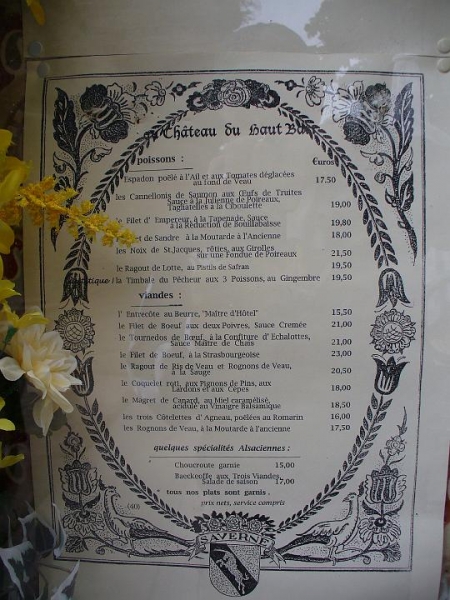 Château du Haut Ba
poissons :
Euros
Espadon poêlé à l'Ail et aux Tomates déglacées
au fond de Veau 17.50
les Cannellonis de Saumon aux Œufs de Truites
Sauce à la Julienne de Poireaux,
Tagliatelles à la Ciboulette 19,00
le Filet d' Empereur, à la Tapenade, Sauce
à la Réduction de Bouillabaisse 19,80
et de Sandre à la Moutarde à l'Ancienne 18,00
les Noix de St.Jacques, rôties, aux Girolles
sur une Fondue de Poireaux 21,50
le Ragout de Lotte, au Pistin de Safran 19,50
la Timbale du Pêcheur aux 3 Poissons, au Gingembre 19,50
viandes :
l' Entrecôte au Beurre, "Maître d'Hôtel" 15,50
le Filet de Boeuf aux deux Poivres, Sauce Cremée 21,00
le Tournedos de Bœuf, à la Confiture d' Echalottes,
Sauce Maître de Chais 21,00
le Filet de Boeuf, à la Strasbourgeoise 23,00
le Ragout de Ris de Veau et Rognons de Veau,
à la Sauge 20,50
le Coquelet roti, aux Pignons de Pins, aux
Lardons et aux Cèpes 18,00
le Magret de Canard, au Miel caramélisé,
acidulé au Vinaigre Balsamique 18,50
les trois Côtelettes d' Agneau, poëllées au Romarin 16,00
les Rognons de Veau, à la Moutarde à l'ancienne 17,50
quelques spécialités Alsaciennes :
Choucroute garnie 15,00
Baeckeoffe aux Trois Viandes,
Salade de saison 17,00
tous nos plats sont garnis .
(40) prix nets, service compris
SAVERNE